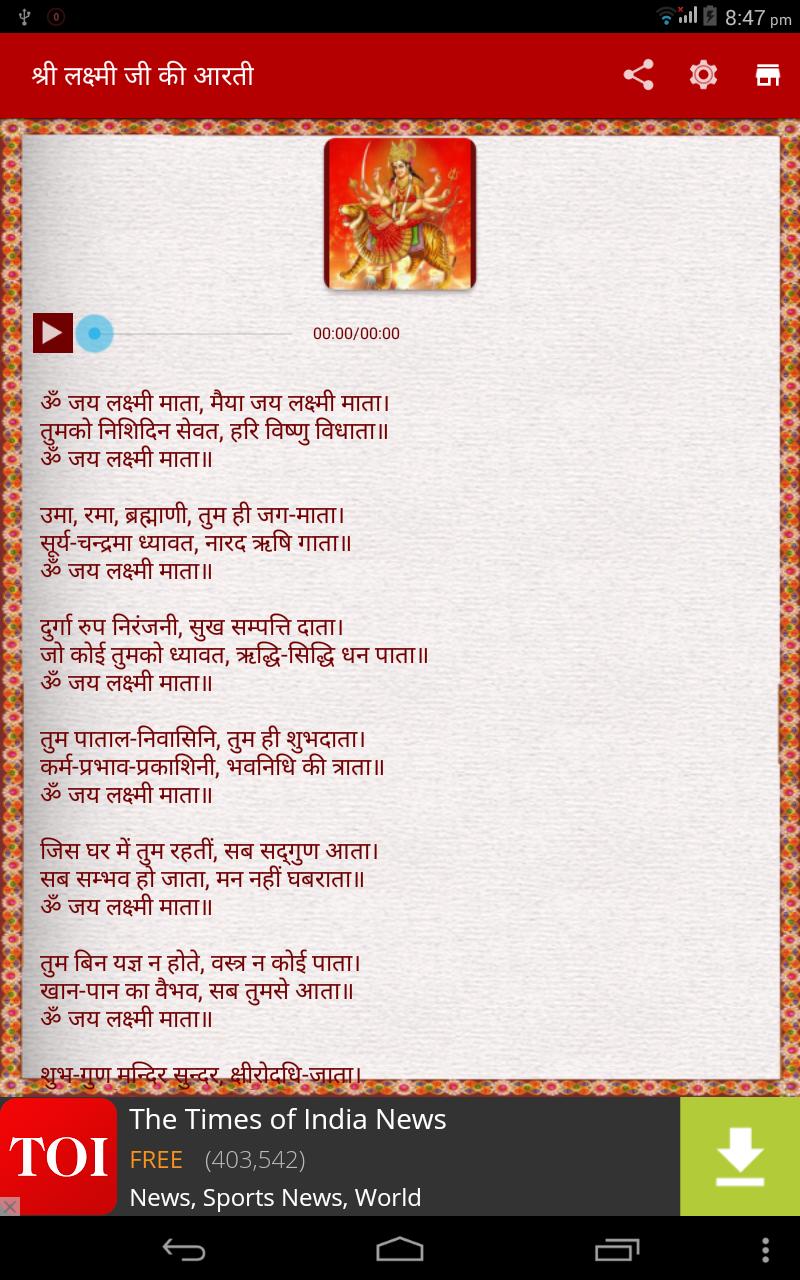 0
8:47 pm
श्री लक्ष्मी जी की आरती
00:00/00:00
ॐ जय लक्ष्मी माता, मैया जय लक्ष्मी माता।
तुमको निशिदिन सेवत, हरि विष्णु विधाता॥
ॐ जय लक्ष्मी माता॥
उमा, रमा, ब्रह्माणी, तुम ही जग-माता।
सूर्य-चन्द्रमा ध्यावत, नारद ऋषि गाता॥
ॐ जय लक्ष्मी माता॥
दुर्गा रुप निरंजनी, सुख सम्पत्ति दाता।
जो कोई तुमको ध्यावत, ऋद्धि-सिद्धि धन पाता॥
ॐ जय लक्ष्मी माता॥
तुम पाताल-निवासिनि, तुम ही शुभदाता।
कर्म-प्रभाव-प्रकाशिनी, भवनिधि की त्राता॥
ॐ जय लक्ष्मी माता॥
जिस घर में तुम रहतीं, सब सद्‌गुण आता।
सब सम्भव हो जाता, मन नहीं घबराता॥
ॐ जय लक्ष्मी माता॥
तुम बिन यज्ञ न होते, वस्त्र न कोई पाता।
खान-पान का वैभव, सब तुमसे आता॥
ॐ जय लक्ष्मी माता॥
शुभ-गुण मन्दिर सुन्दर, क्षीरोदधि-जाता।
TOI
The Times of India News
FREE (403,542)
News, Sports News, World